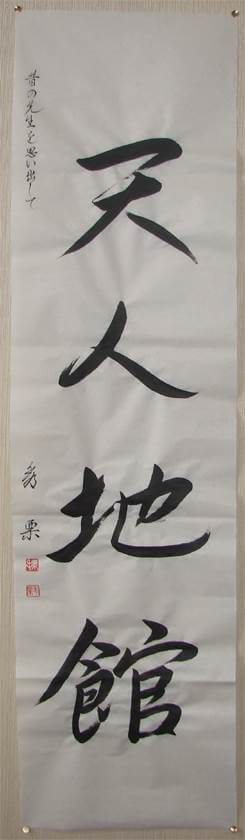 天人地館
昔の先生を思い出して
秀栗